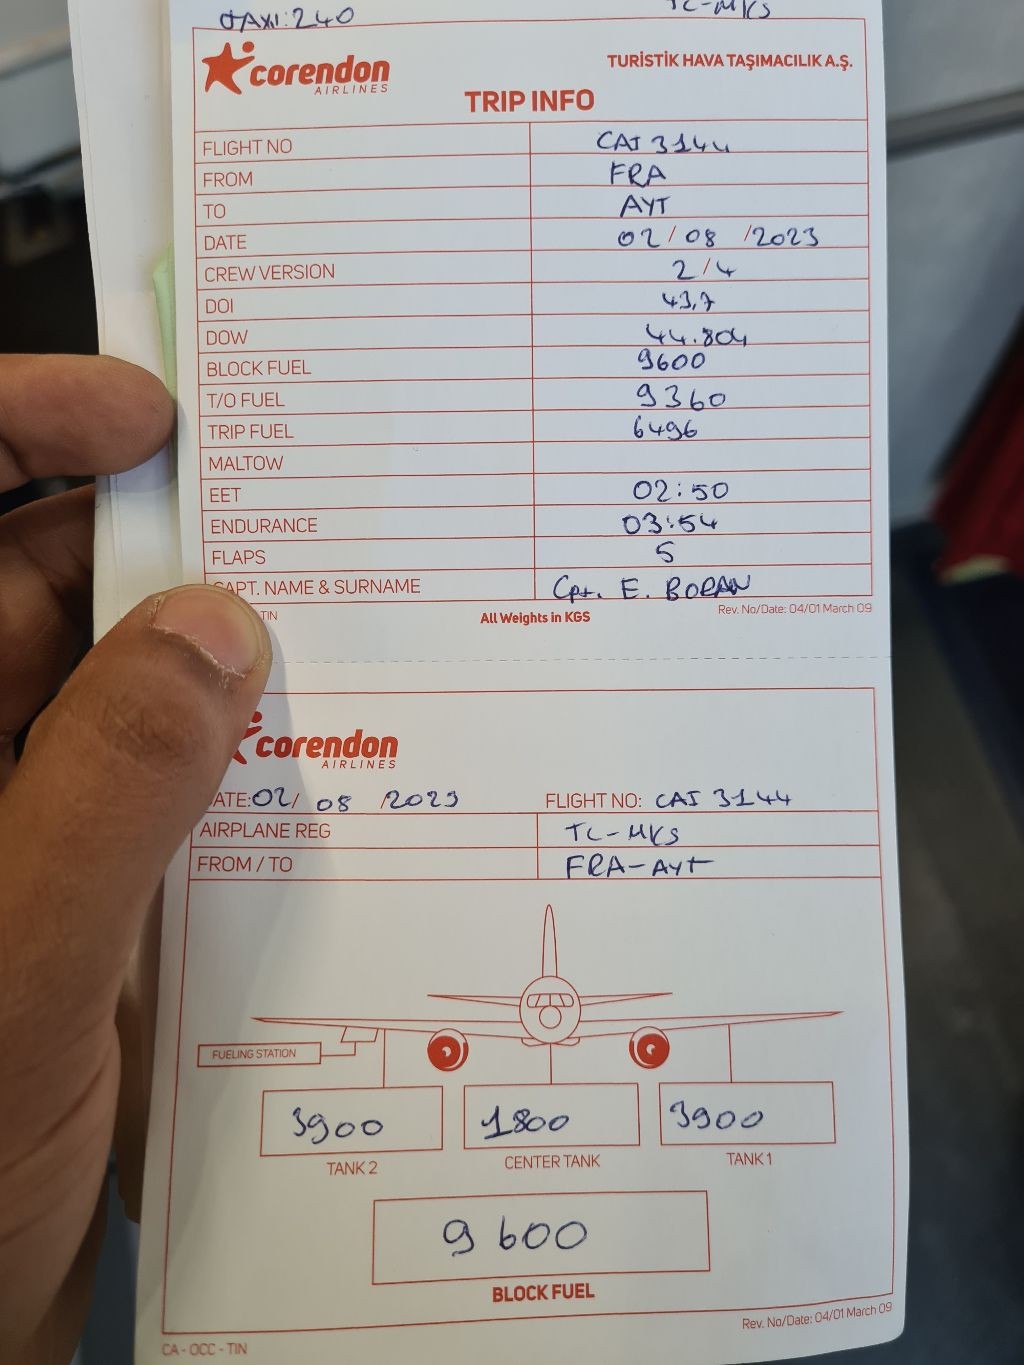 TAXI: 240 TC-MKS
corendon AIRLINES
TURİSTİK HAVA TAŞIMACILIK A.Ş.
TRIP INFO
FLIGHT NO CAI 3144
FROM FRA
TO AYT
DATE 02/08/2023
CREW VERSION 2/4
DOI 43,7
DOW 44.804
BLOCK FUEL 9600
T/O FUEL 9360
TRIP FUEL 6496
MALTOW
EET 02:50
ENDURANCE 03:54
FLAPS 5
CAPT. NAME & SURNAME Cpt. E. BORAN
TIN All Weights in KGS Rev. No/Date: 04/01 March 09
corendon AIRLINES
DATE: 02/08/2023 FLIGHT NO: CAI 3144
AIRPLANE REG TC-MKS
FROM / TO FRA-AYT
FUELING STATION
3900 1800 3900
TANK 2 CENTER TANK TANK 1
9600
BLOCK FUEL
Rev. No/Date: 04/01 March 09
CA - OCC - TIN